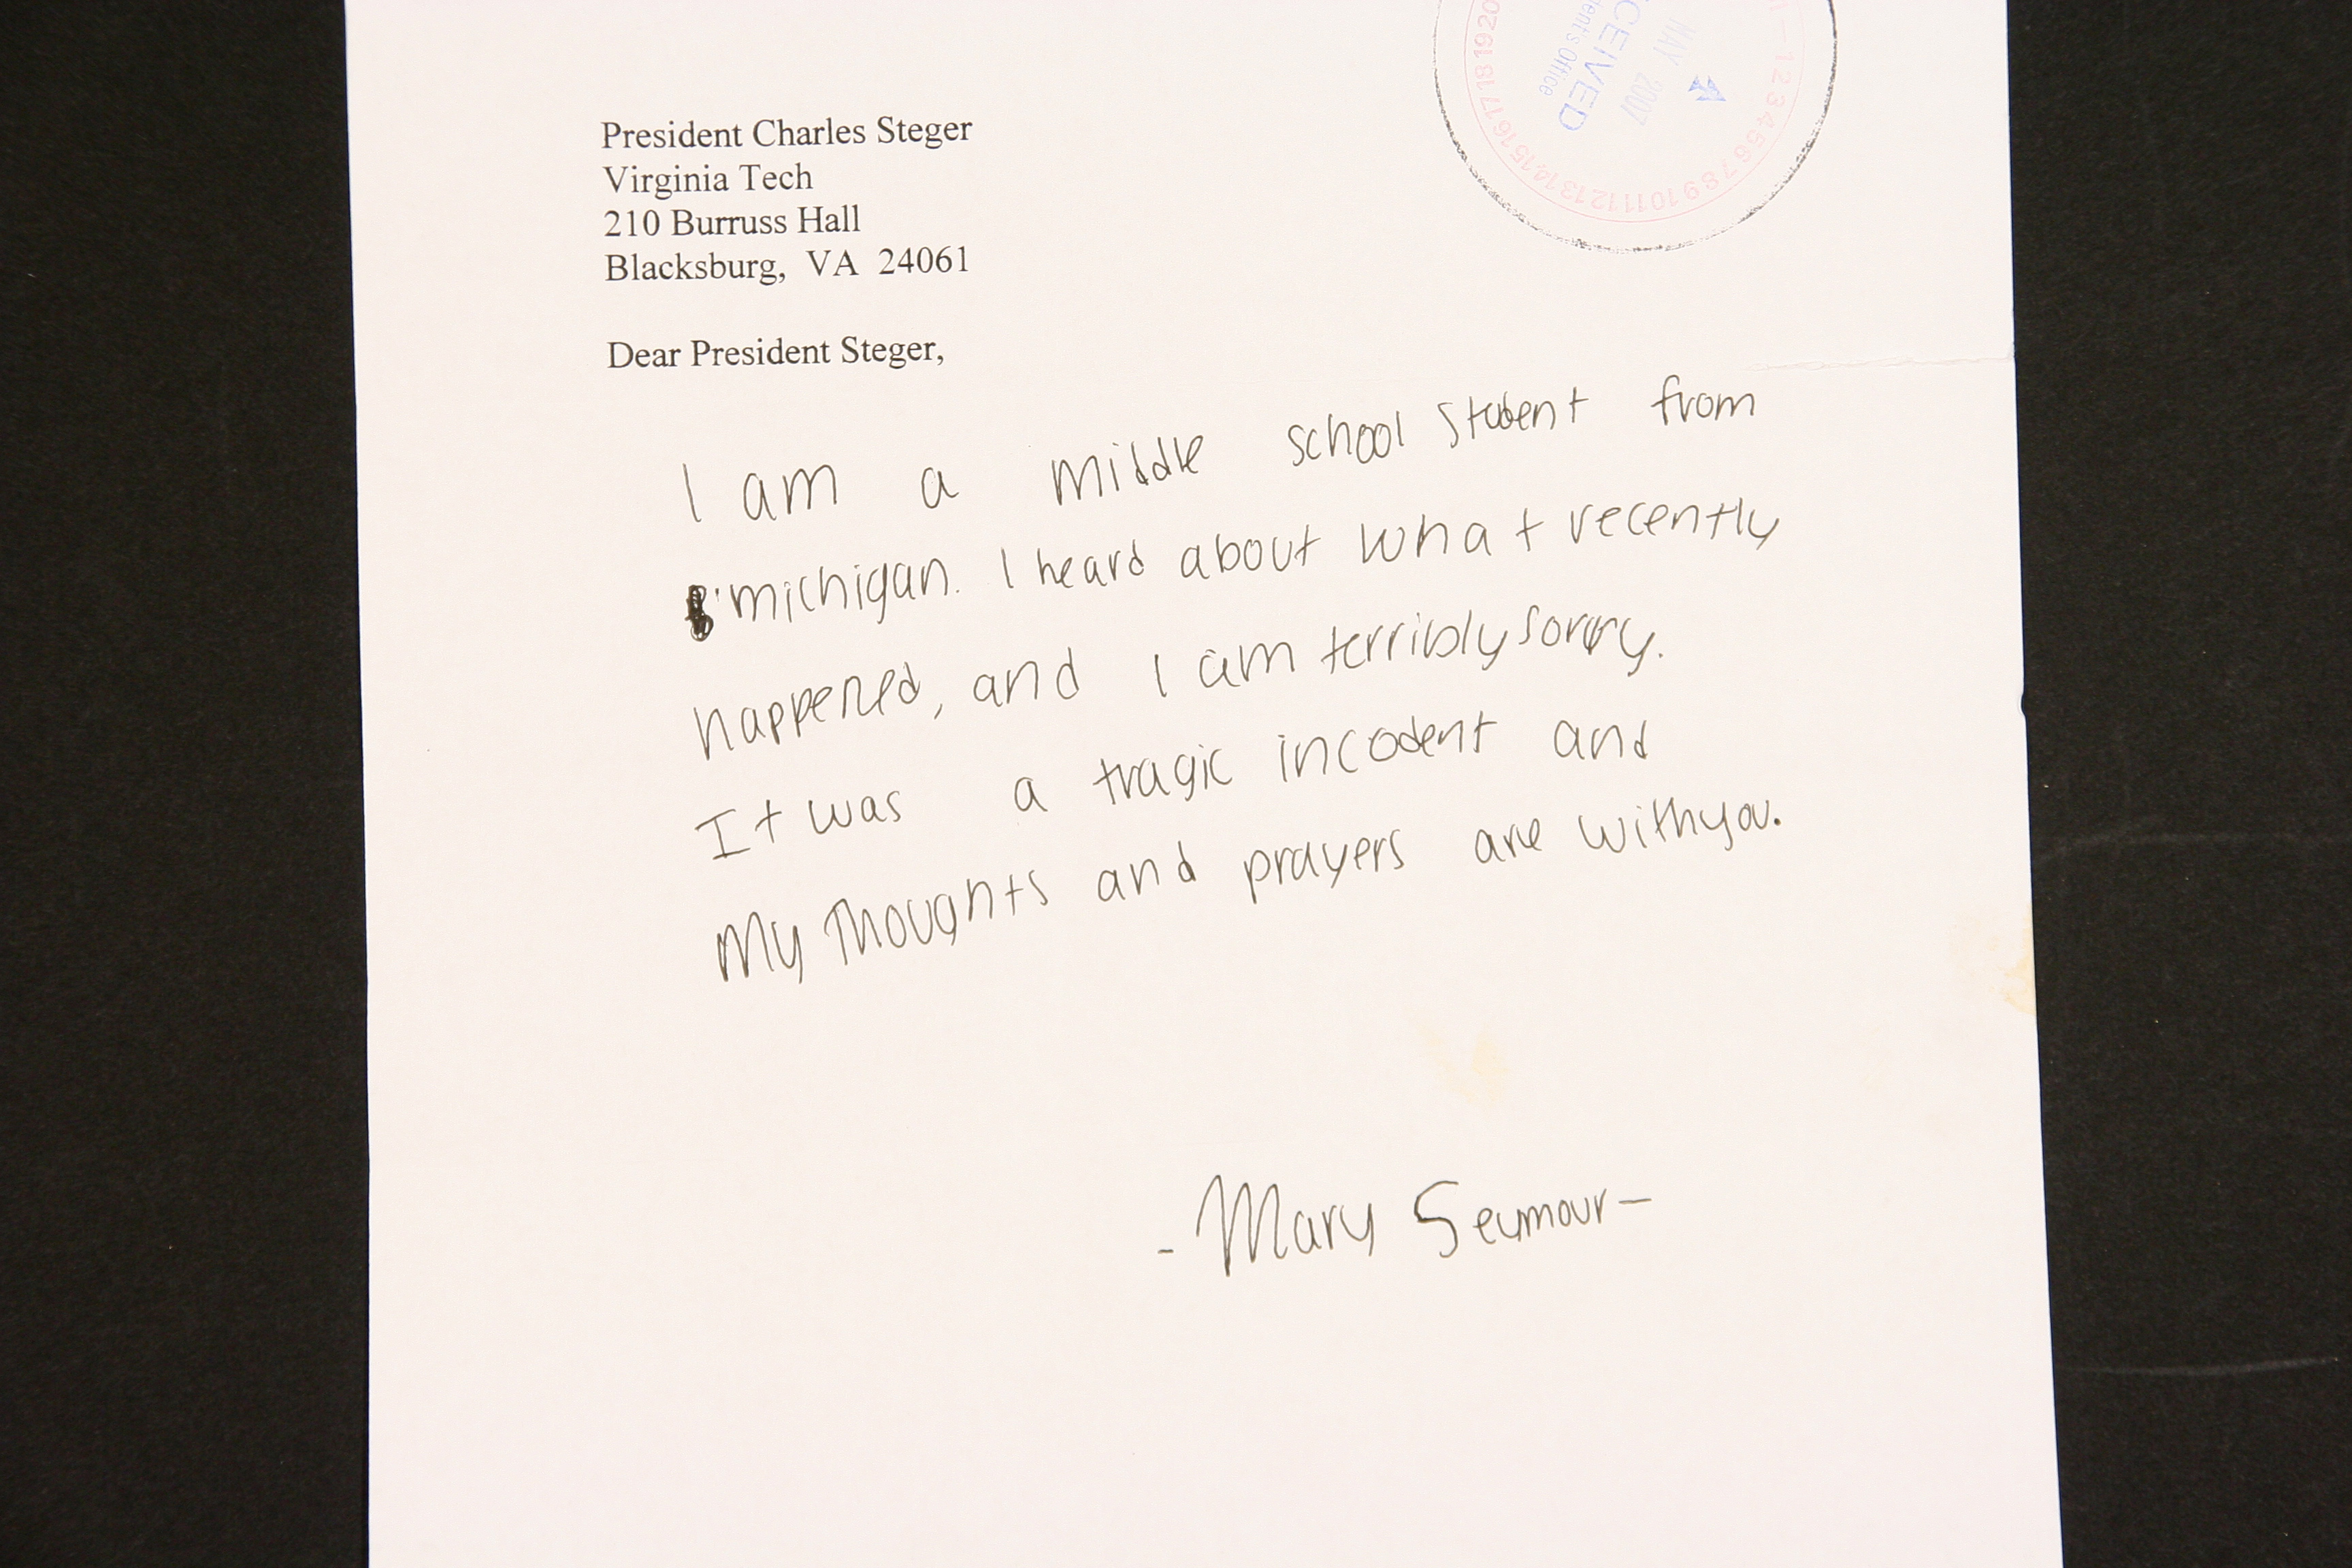 President Charles Steger
Virginia Tech
210 Burruss Hall
Blacksburg, VA 24061
MAY 2007
CEIVED
dent's Office
1 2 3 4 5 6 7 8 9 10 11 12 13 14 15 16 17 18 19 20
Dear President Steger,
I am a middle school student from
michigan. I heard about what recently
happened, and I am terribly sorry.
It was a tragic incodent and
My Thoughts and prayers are withyou.
- Mary Seymour -